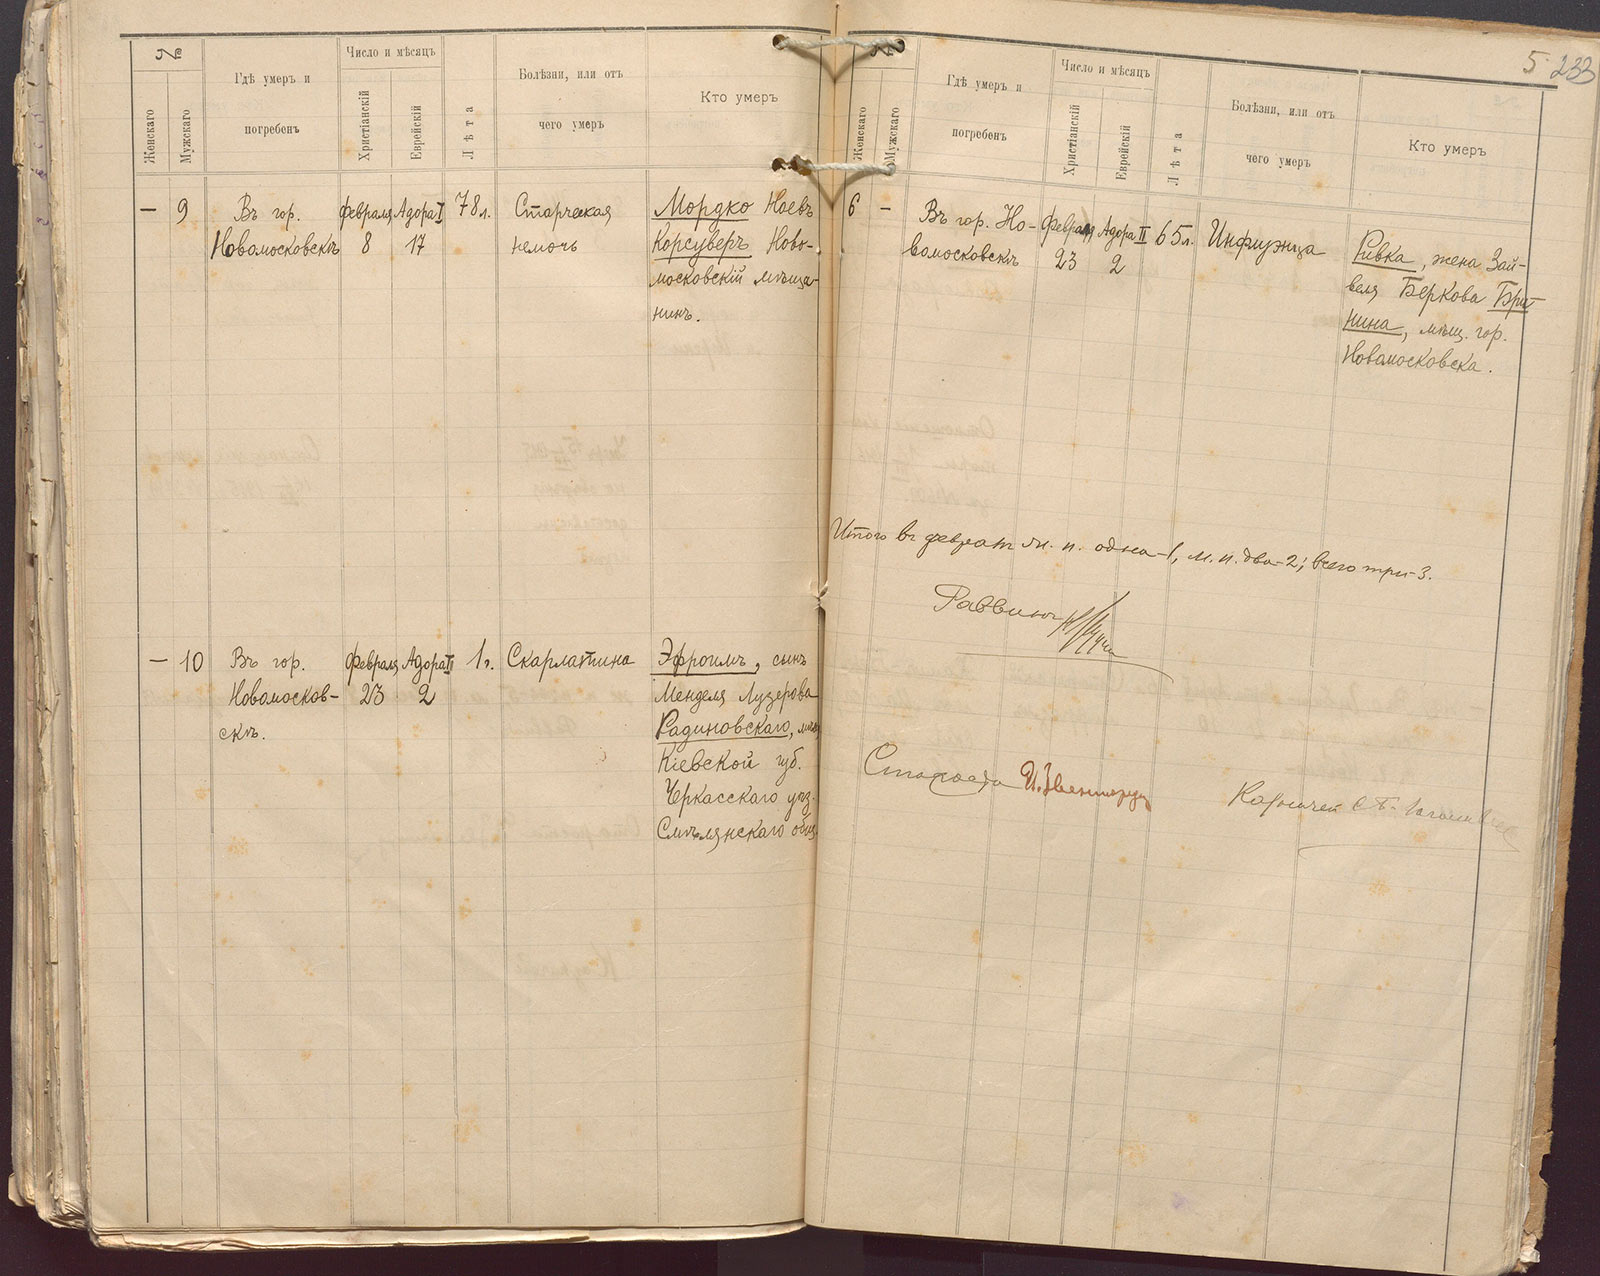 №
Женскаго
Мужскаго
Гдѣ умеръ и
погребенъ
Число и мѣсяцъ
Христіанскій
Еврейскій
Лѣта
Болѣзни, или отъ
чего умеръ
Кто умеръ
— 9
Въ гор.
Новомосковскѣ
Февраля
8
Адора I
17
78 л.
Старческая
немочь
Мордко Ноевъ
Корсуверъ Ново-
московскій мѣща-
нинъ.
— 10
Въ гор.
Новомосков-
скѣ.
Февраля
23
Адора II
2
1 г.
Скарлатина
Эфроимъ, сынъ
Менделя Лузерова
Радиновскаго,
Кіевской губ.
Черкасскаго уѣз.
Смѣлянскаго общ.
5 233
№
Женскаго
Мужскаго
Гдѣ умеръ и
погребенъ
Число и мѣсяцъ
Христіанскій
Еврейскій
Лѣта
Болѣзни, или отъ
чего умеръ
Кто умеръ
6 —
Въ гор. Но-
вомосковскѣ
Февраля
23
Адора II
2
65 л.
Инфлуэнца
Ривка, жена Зай-
веля Беркова Бри-
нина, мѣщ. гор.
Новомосковска.
Итого въ февралѣ ж. п. одна-1, м. п. два-2; всего три-3.
Раввинъ
Староста
Казначей